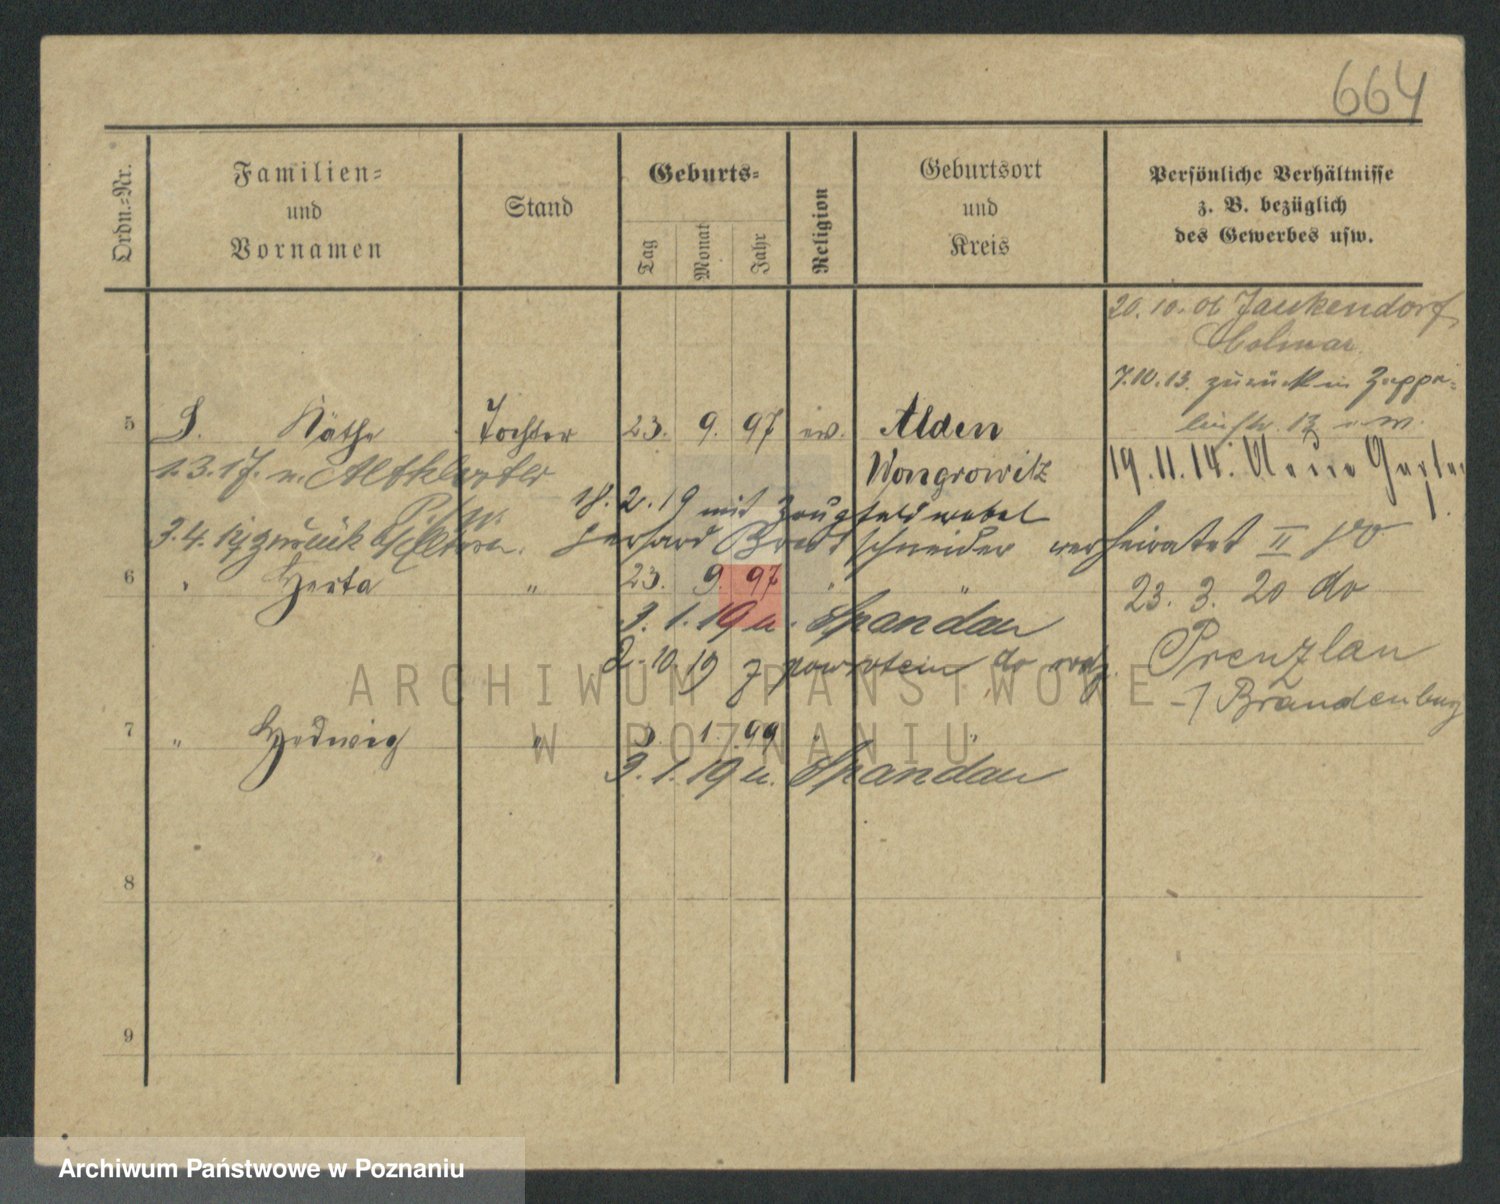 664
Ordn.-Nr.
Familien-
und
Vornamen
Stand
Geburts-
Tag
Monat
Jahr
Religion
Geburtsort
und
Kreis
Persönliche Verhältnisse
z. B. bezüglich
des Gewerbes usw.
20. 10. 06 Jankendorf
Colmar
7.10.13. zurück in Zeppe-
linstr. 13
5 Käthe Tochter 23. 9. 97 ev. Alden
1.3.17. n. Altkloster Wongrowitz 19. 11. 14. Neue Garten
18. 2. 19 mit Zeugfeldwebel
3.4.17 zurück Eltern. Gerhard Brettschneider verheiratet II
6 " Herta " 23. 9. 97 " "
23. 3. 20 do
3. 1. 19 n. Spandau
10 19 z powrotem do Prenzlau
Brandenburg
7 " Hedwig " 3. 1. 99 " "
3. 1. 19 n. Spandau
8
9
ARCHIWUM PAŃSTWOWE
W POZNANIU
Archiwum Państwowe w Poznaniu